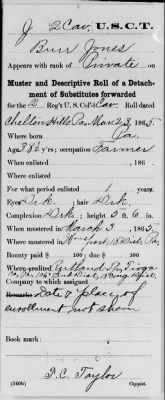 J 2 Cav. U.S.C.T.
Burr Jones
Appears with rank of Private on
Muster and Descriptive Roll of a Detach-
ment of Substitutes forwarded
for the 2 Reg't U. S. Col'd Cav. Roll dated
Chelten Hills, Pa. Mar 23, 1865.
Where born Pa.
Age 38 y'rs; occupation Farmer
When enlisted , 186 .
Where enlisted
For what period enlisted 1 years.
Eyes Drk.; hair Drk.
Complexion Drk.; height 5 ft. 6 in.
When mustered in March 3, 1865.
Where mustered in
Bounty paid $ 100; due $ 100
Where credited
Company to which assigned
Remarks: Date & place of
enrollment not shown
Book mark:
J. C. Taylor
(340c) Copyist.